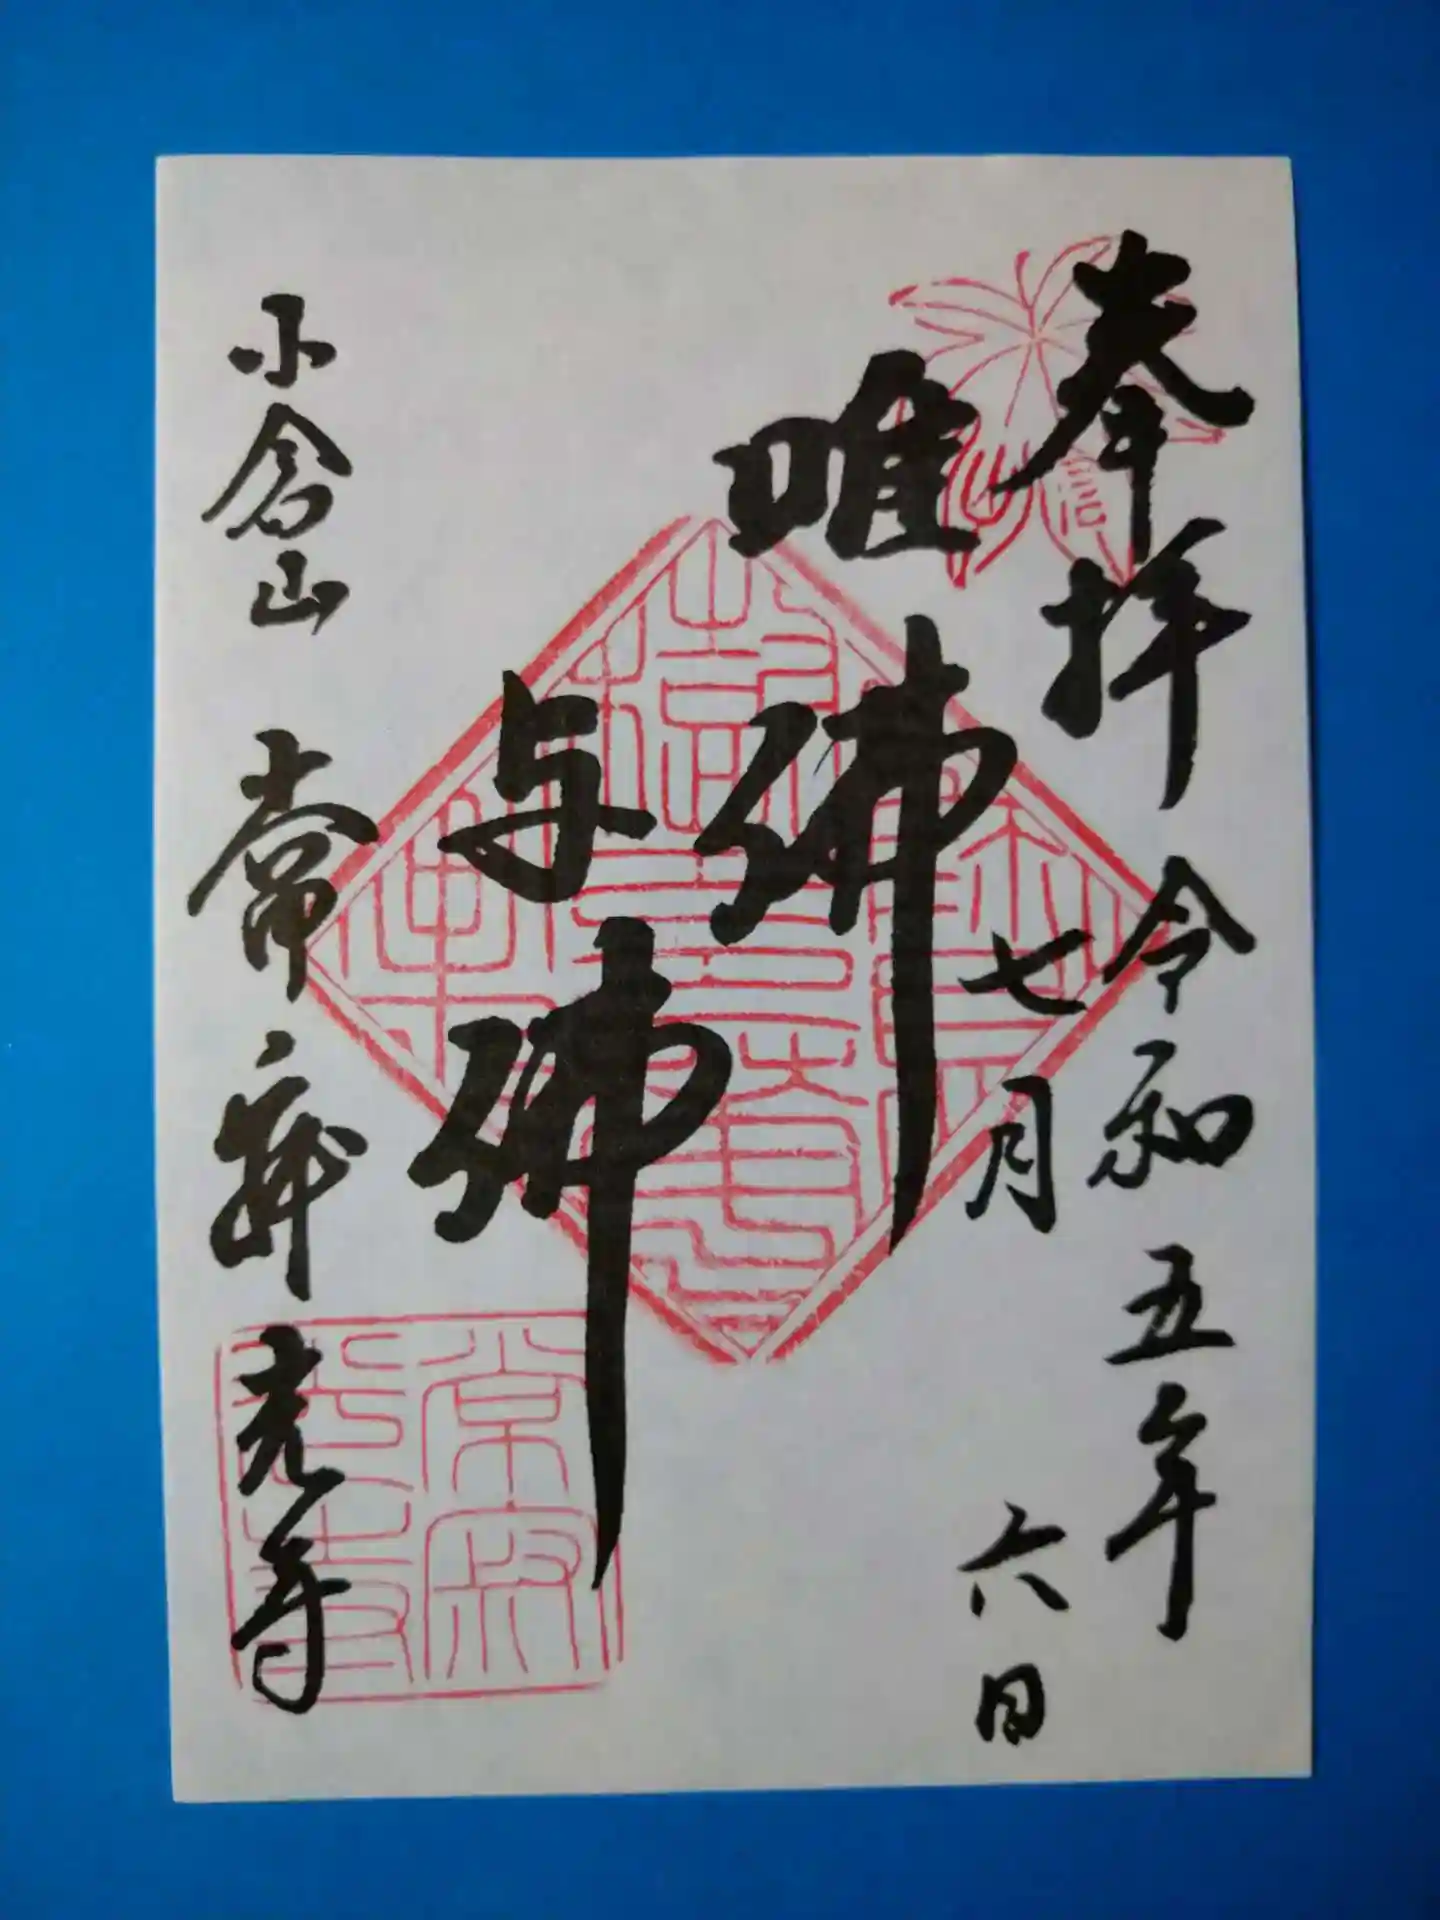 奉拝
令和五年
七月六日
唯佛
与佛
小倉山 常寂光寺
常寂
光寺